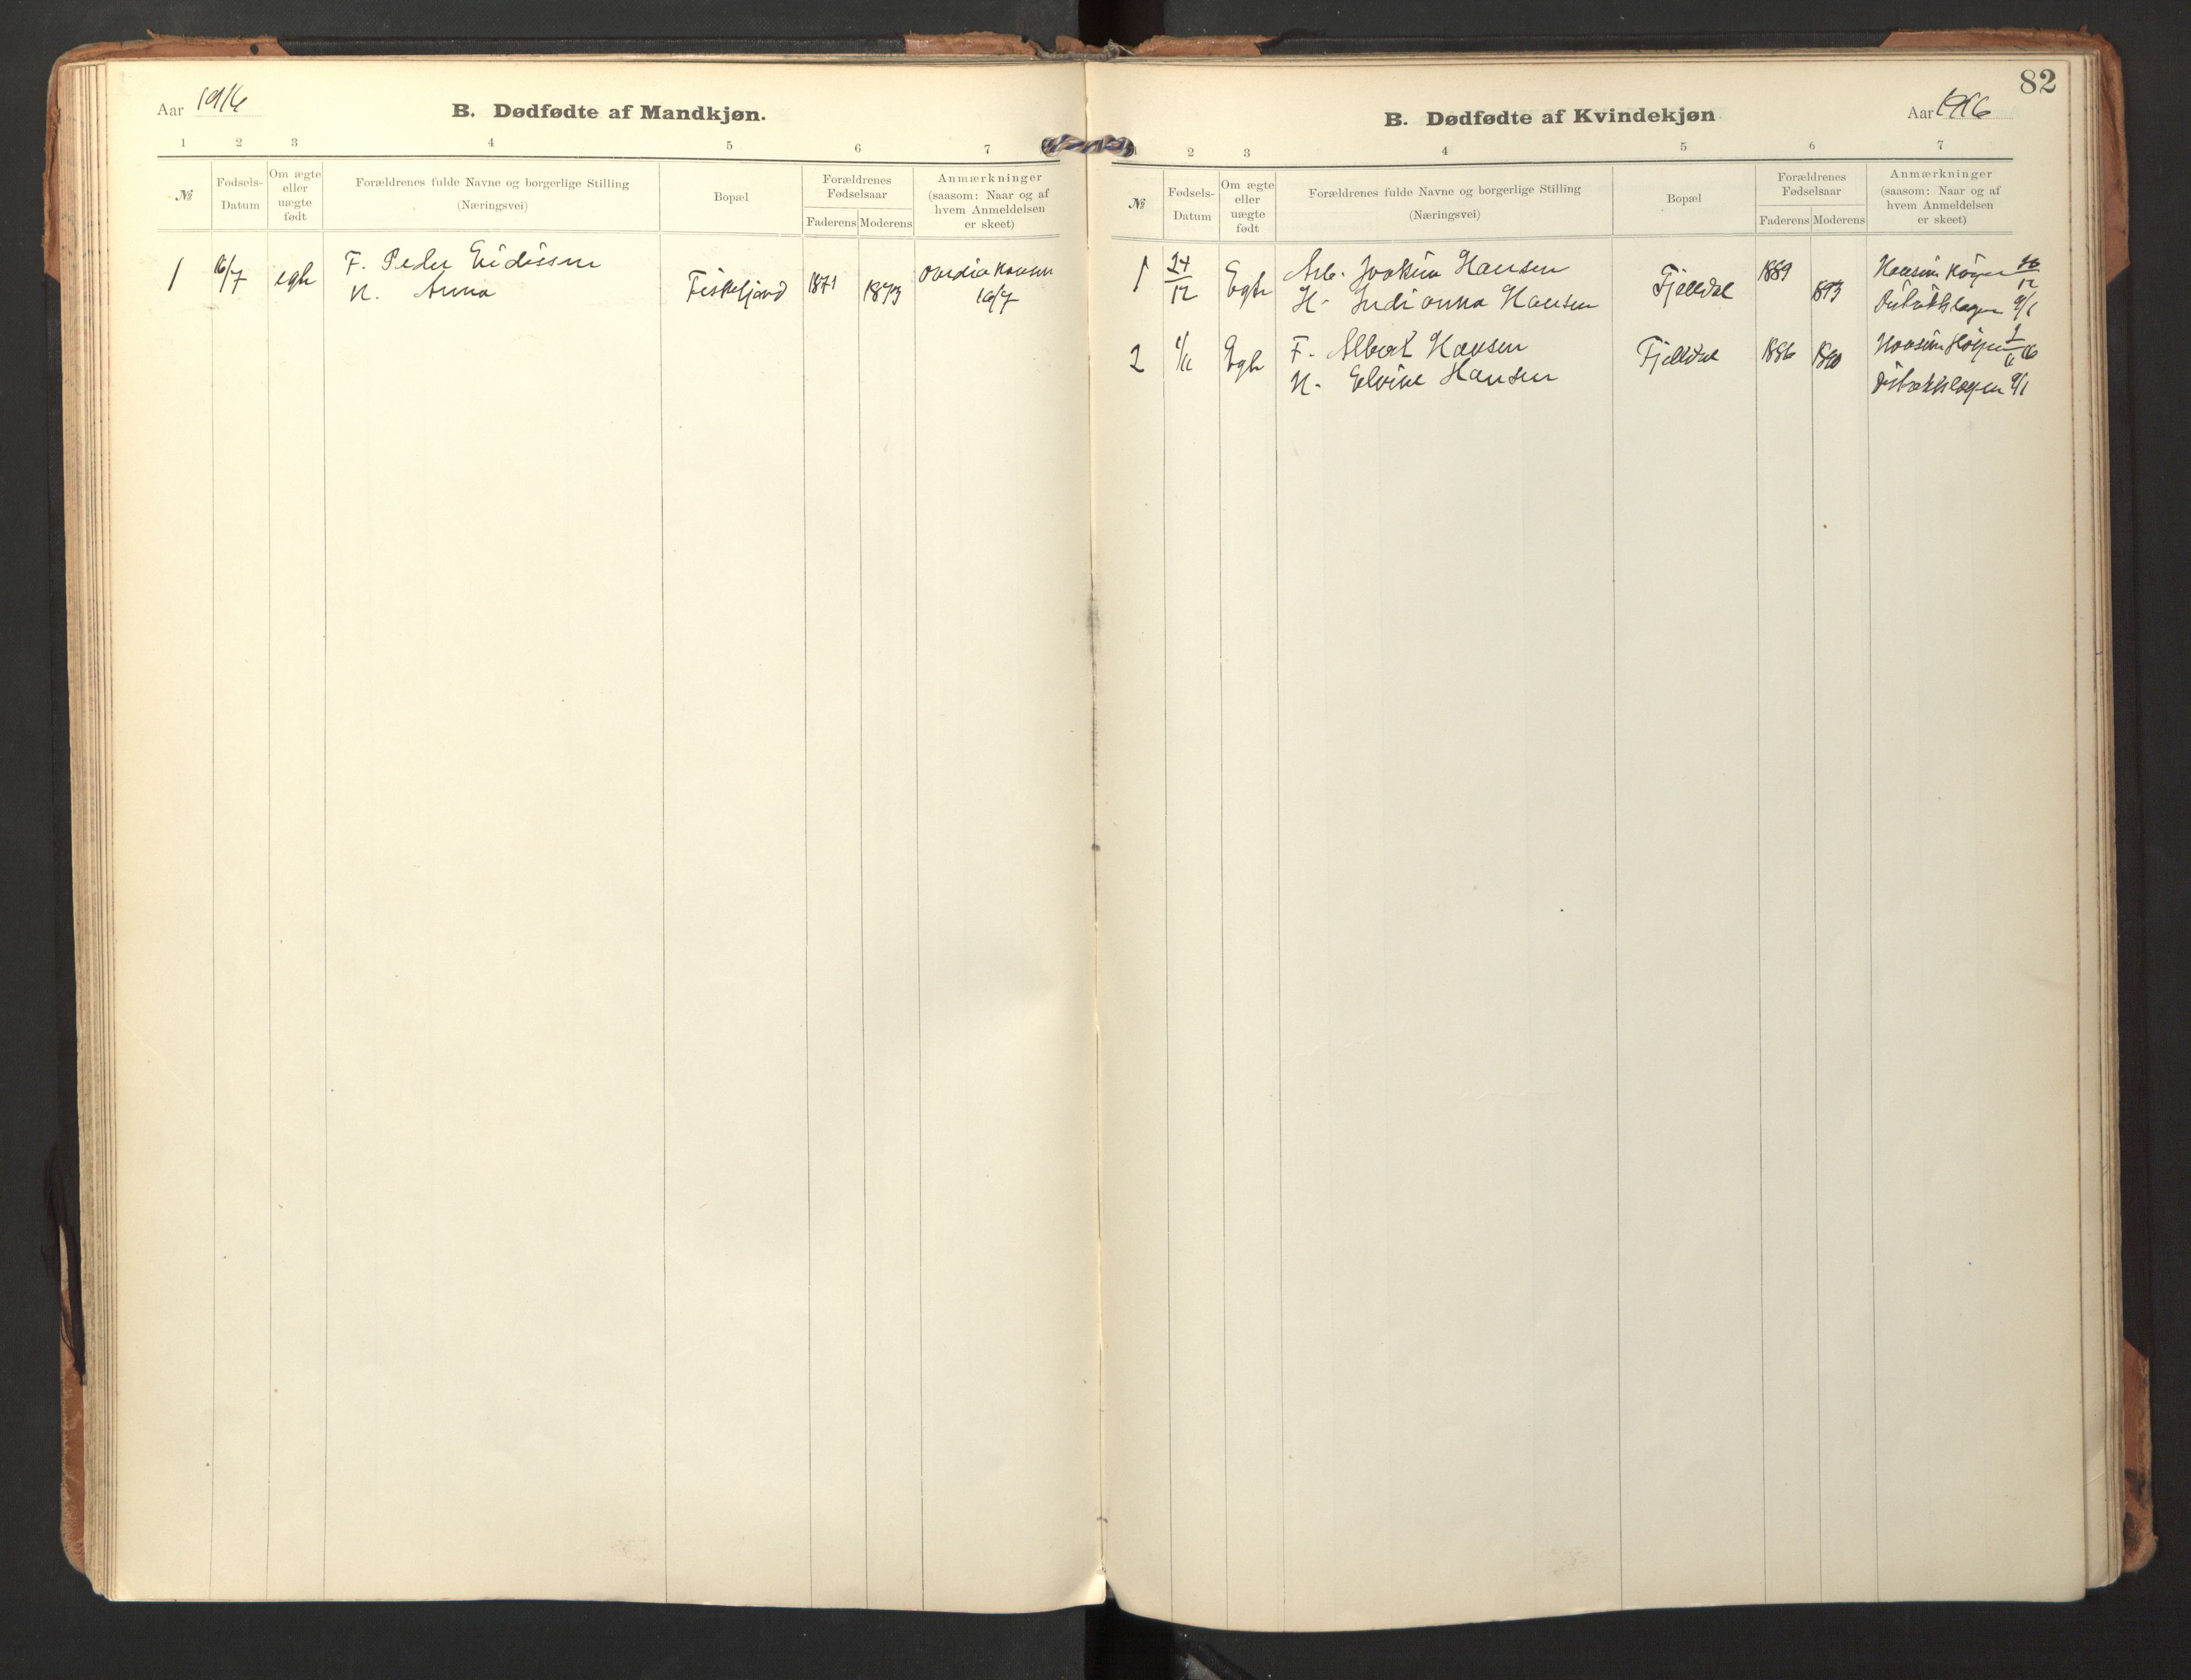 Aar 1916
B. Dødfødte af Mandkjøn.
1 2 3 4 5 6 7
№
Fødsels-
Datum
Om ægte
eller
uægte
født
Forældrenes fulde Navne og borgerlige Stilling
(Næringsvei)
Bopæl
Forældrenes
Fødselsaar
Faderens Moderens
Anmærkninger
(saasom: Naar og af
hvem Anmeldelsen
er skeet)
1 16/7 egte F. Peder
H. Anna
Fiskefjord 1871 1873
16/7
82
B. Dødfødte af Kvindekjøn
Aar 1916
1 2 3 4 5 6 7
№
Fødsels-
Datum
Om ægte
eller
uægte
født
Forældrenes fulde Navne og borgerlige Stilling
(Næringsvei)
Bopæl
Forældrenes
Fødselsaar
Faderens Moderens
Anmærkninger
(saasom: Naar og af
hvem Anmeldelsen
er skeet)
1 24/12 Egte Arb. Joakim Hansen
H. Indianna Hansen
Fjelldal 1889 1893
Distriktslægen 9/1
2 Egte F. Albert Hansen
H. Elvine Hansen
Fjelldal 1886 1890
Distriktslægen 9/1